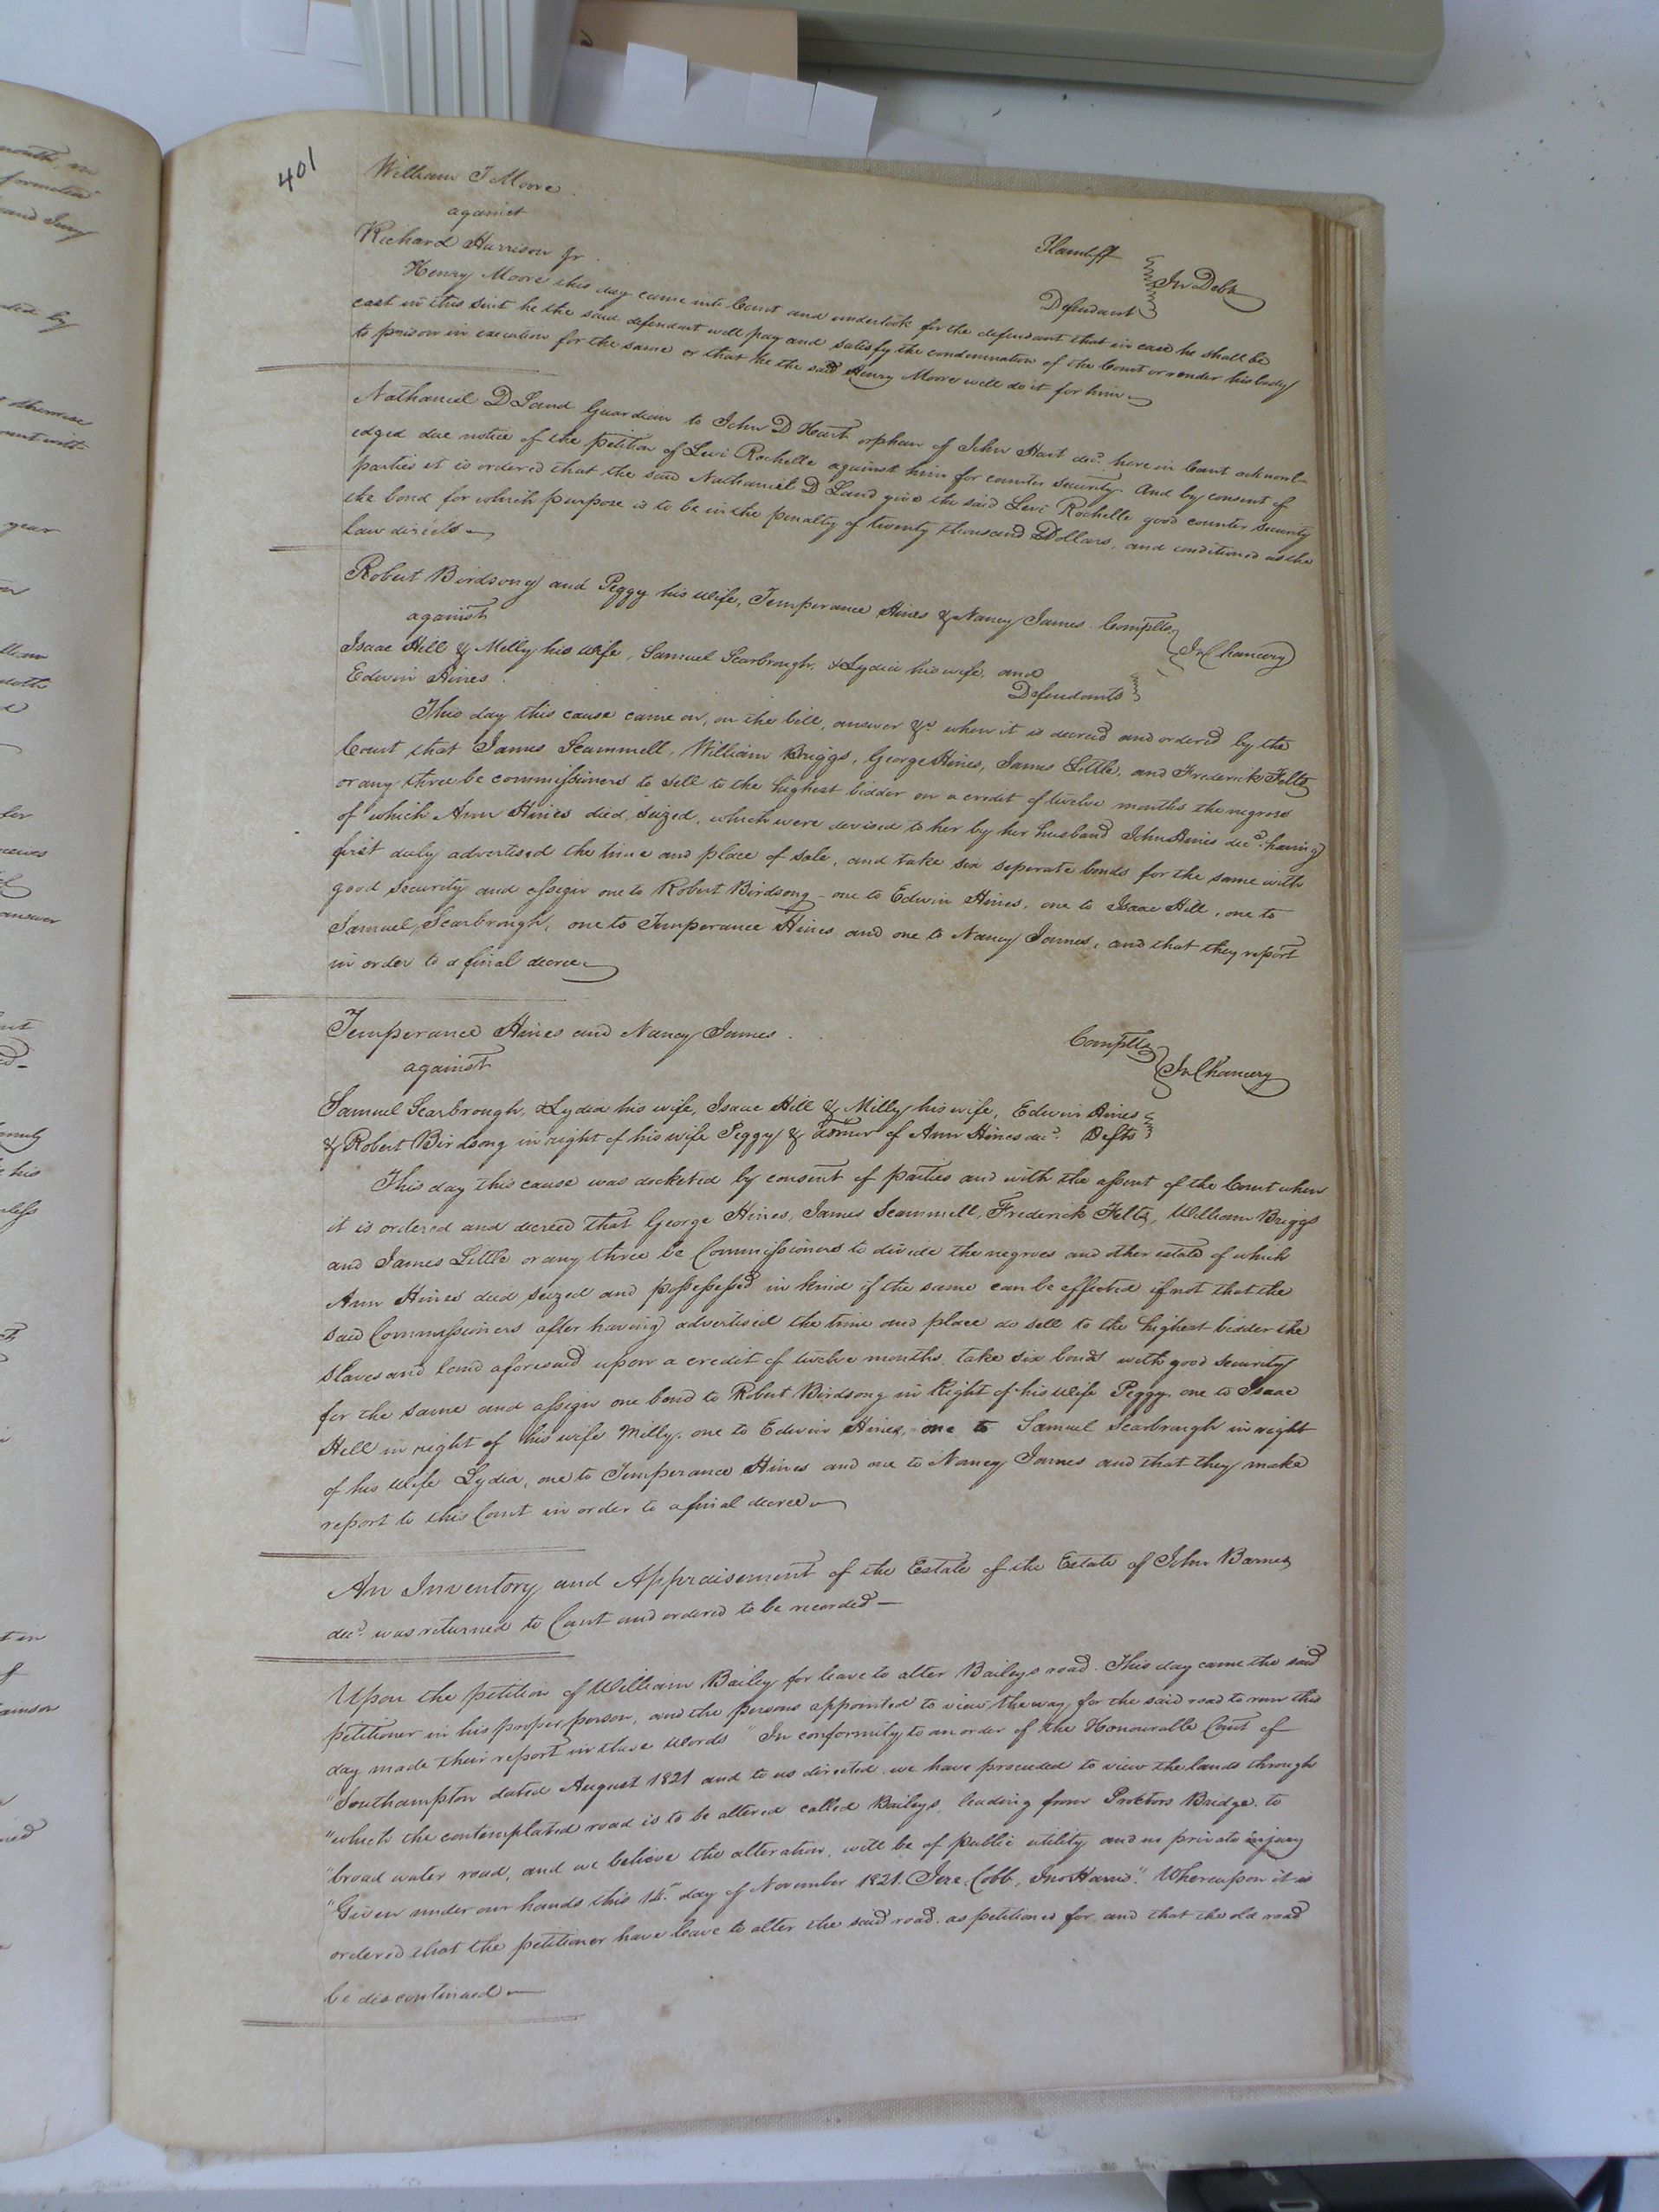 401
William T Moore
Plaintiff
against
In Debt
Richard Harrison Jr.
Defendant
Henry Moore this day came into Court and undertook for the defendant that in case he shall be
cast in this suit he the said defendant will pay and satisfy the condemnation of the Court or render his body
to prison in execution for the same or that he the said Henry Moore will do it for him
Nathaniel D Land Guardian to John D Hart orphan of John Hart decd. here in Court acknowl-
edged due notice of the petition of Levi Rochelle against him for counter security. And by consent of
parties it is ordered that the said Nathaniel D Land give the said Levi Rochelle good counter security
the bond for which purpose is to be in the penalty of twenty thousand Dollars, and conditioned as the
law directs
Robert Birdsong and Peggy his wife, Temperance Hines & Nancy James Complts.
against
In Chancery
Isaac Hill & Milly his wife, Samuel Scarbrough & Lydia his wife, and
Edwin Hines.
Defendants
This day this cause came on, on the bill, answer &c. when it is decreed and ordered by the
Court that James Scammell, William Briggs, George Hines, James Little, and Frederick Felts
or any three be commissioners to sell to the highest bidder on a credit of twelve months the negroes
of which Ann Hines died, seized, which were devised to her by her husband John Hines decd. having
first duly advertised the time and place of sale, and take six seperate bonds for the same with
good security and assign one to Robert Birdsong - one to Edwin Hines, one to Isaac Hill, one to
Samuel Scarbrough, one to Temperance Hines and one to Nancy James, and that they report
in order to a final decree
Temperance Hines and Nancy James.
Complts
against
In Chancery
Samuel Scarbrough, & Lydia his wife, Isaac Hill & Milly his wife, Edwin Hines
& Robert Birdsong in right of his wife Peggy & admr of Ann Hines decd. Defts
This day this cause was docketed by consent of parties and with the assent of the Court when
it is ordered and decreed that George Hines, James Scammell, Frederick Felts, William Briggs
and James Little or any three be Commissioners to divide the negroes and other estate of which
Ann Hines died seized and possessed in kind if the same can be effected if not that the
said Commissioners after having advertised the time and place do sell to the highest bidder the
slaves and land aforesaid upon a credit of twelve months, take six bonds with good security
for the same and assign one bond to Robert Birdsong in Right of his wife Peggy, one to Isaac
Hill in right of his wife Milly, one to Edwin Hines, one to Samuel Scarbrough in right
of his wife Lydia, one to Temperance Hines and one to Nancy James and that they make
report to this Court in order to a final decree
An Inventory and Appraisement of the Estate of the Estate of John Barnes
decd. was returned to Court and ordered to be recorded -
Upon the petition of William Bailey for leave to alter Baileys road. This day came the said
petitioner in his proper person, and the persons appointed to view the way for the said road to run this
day made their report in these words "In conformity to an order of the Honourable Court of
"Southampton dated August 1821 and to us directed we have proceeded to view the lands through
"which the contemplated road is to be altered called Baileys, leading from Proctors Bridge to
"broad water road, and we believe the alteration, will be of public utility and no private injury
"Given under our hands this 14th day of November 1821. Jere. Cobb, Jno Harris". Whereupon it is
ordered that the petitioner have leave to alter the said road, as petitioned for, and that the old road
be discontinued